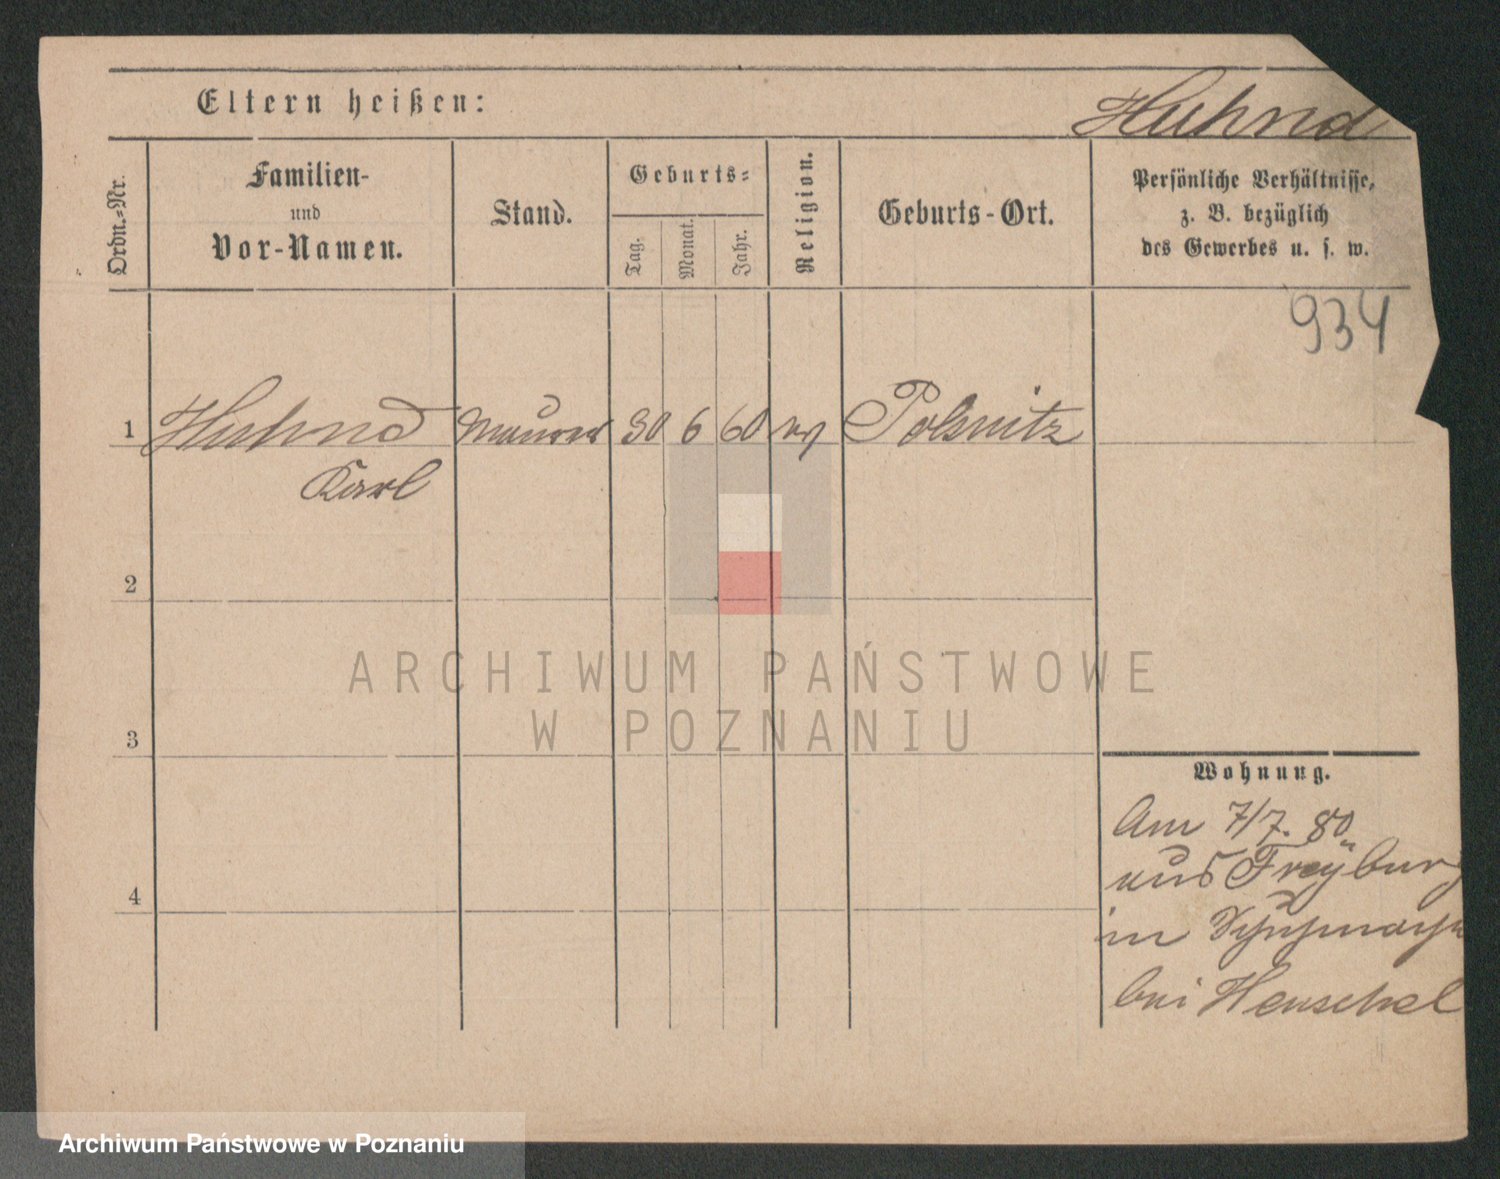 Eltern heißen:
Huhnd
Ordn.-Nr.
Familien-
und
Vor-Namen.
Stand.
Geburts-
Tag.
Monat.
Jahr.
Religion.
Geburts-Ort.
Persönliche Verhältnisse,
z. B. bezüglich
des Gewerbes u. s. w.
934
1 Huhnd Maurer 30 6 60 ev Polsnitz
Karl
2
3
4
Wohnung.
Am 7/7. 80
aus Freyburg
in
bei Henschel
ARCHIWUM PAŃSTWOWE
W POZNANIU
Archiwum Państwowe w Poznaniu